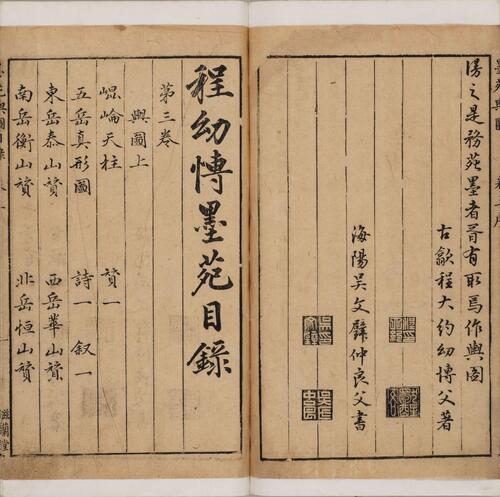 之是務苑墨者胥有取焉作輿圖
古歙程大約幼博父著
海陽吳文仲良父書
程幼愽墨苑目錄
第三卷
輿圖上
崐崙天柱 贊一
五岳真形圖 詩一 叙一
東岳泰山贊 西岳華山贊
南岳衡山贊 北岳恒山贊
滋蘭堂